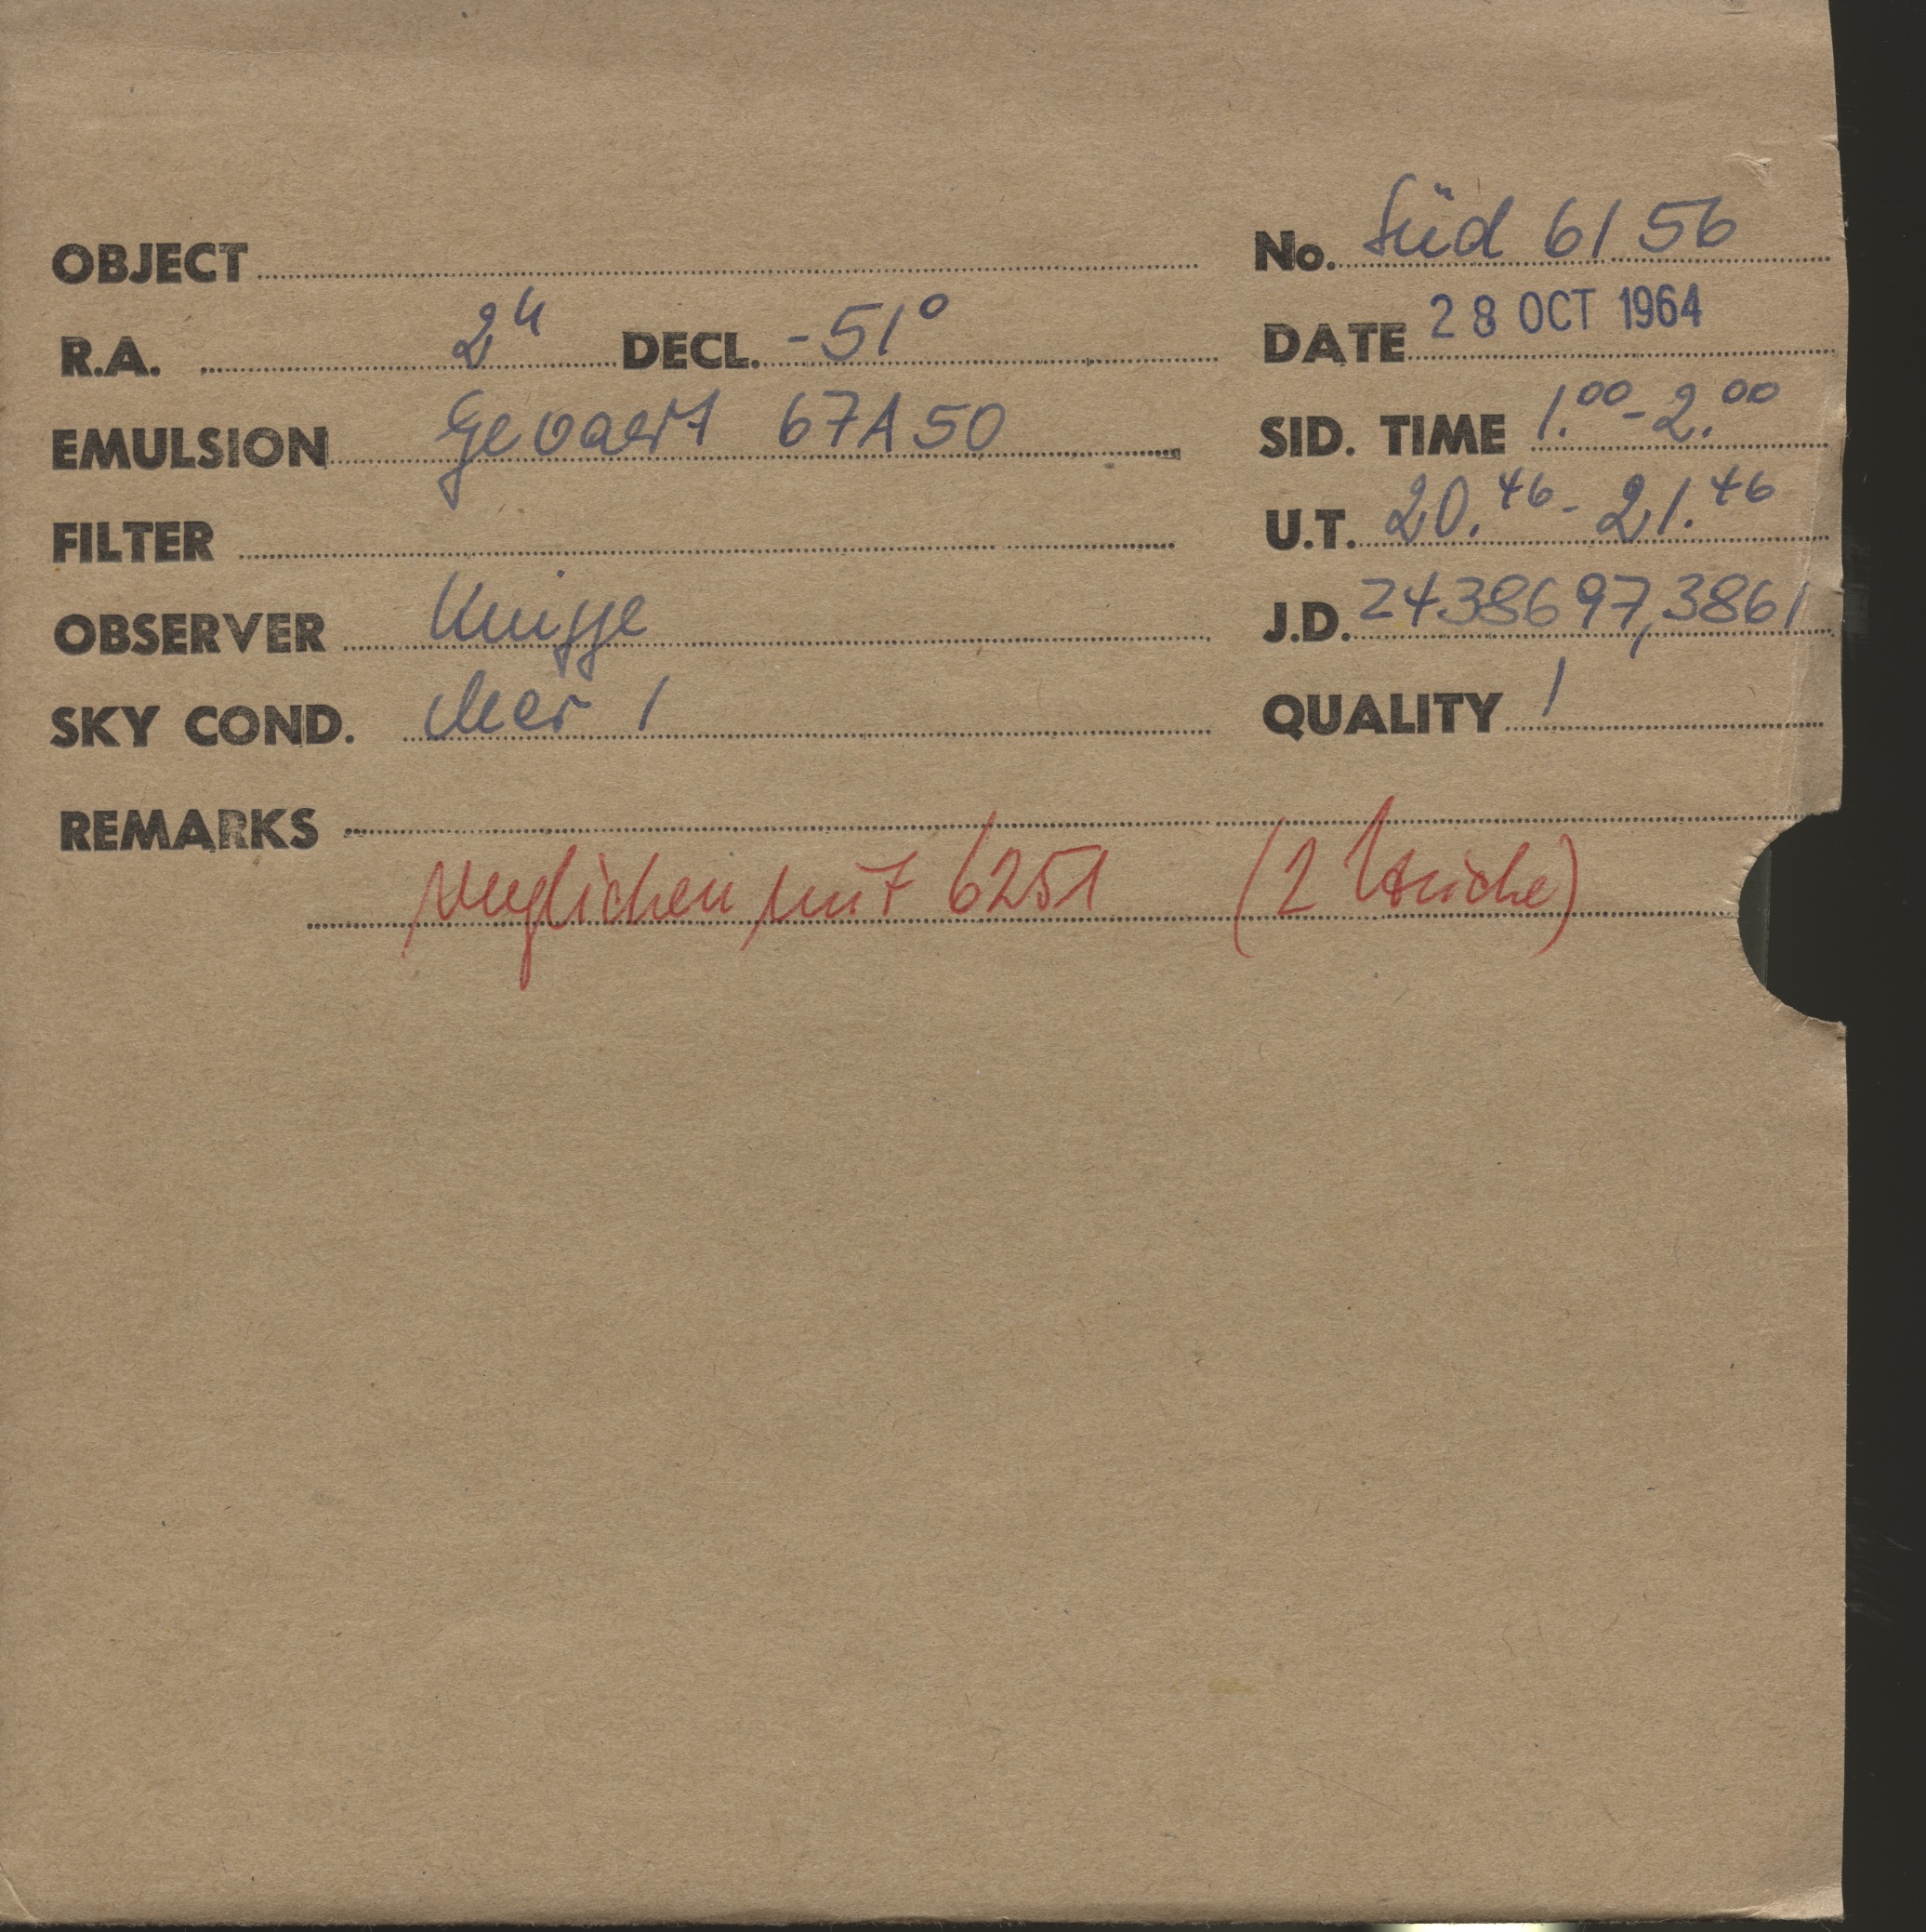 OBJECT No. Süd 6156
R.A. 2h DECL. -51° DATE 28 OCT 1964
EMULSION Gevaert 67A50 SID. TIME 1.00-2.00
FILTER U.T. 20.46-21.46
OBSERVER Knigge J.D. 2438697,3861
SKY COND. klar 1 QUALITY 1
REMARKS
verglichen mit 6251 (2 Striche)